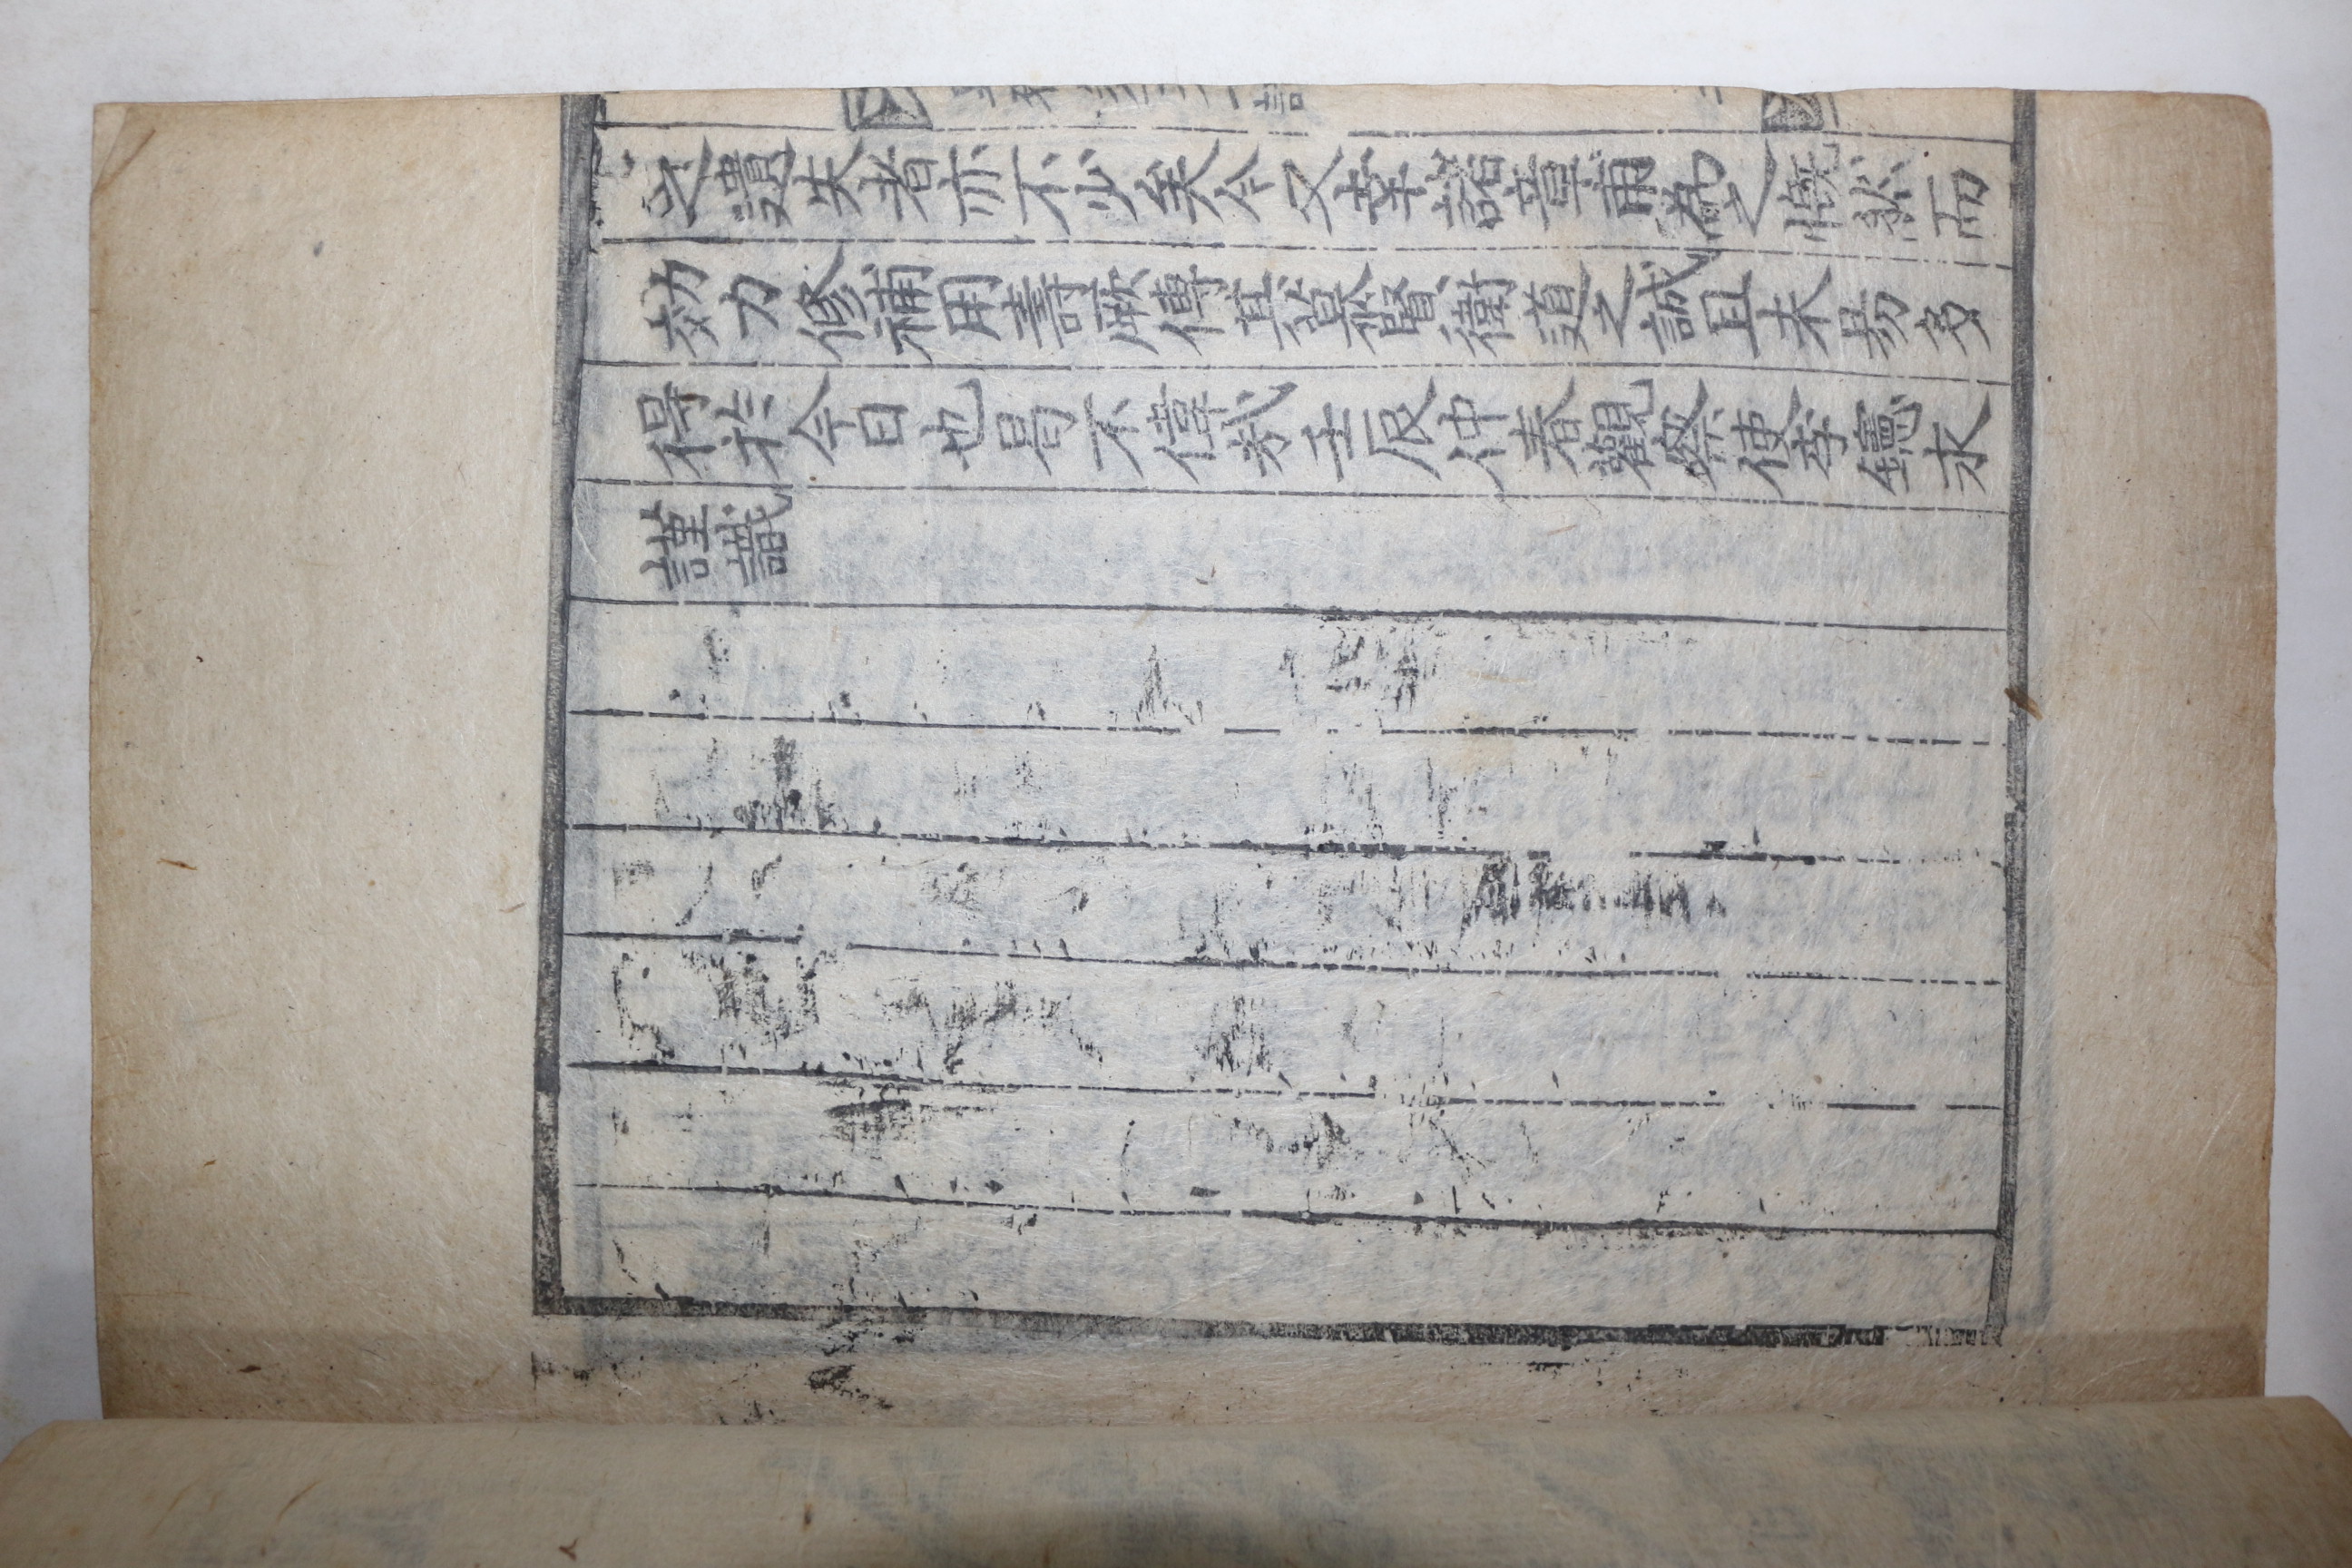 之遺失者亦不少矣今又幸諸章甫為之慨然而
効力修補用壽厥傳其慕賢衛道之誠且未易多
得於今日也曷不偉哉壬辰仲春觀察使李鏸永
謹識